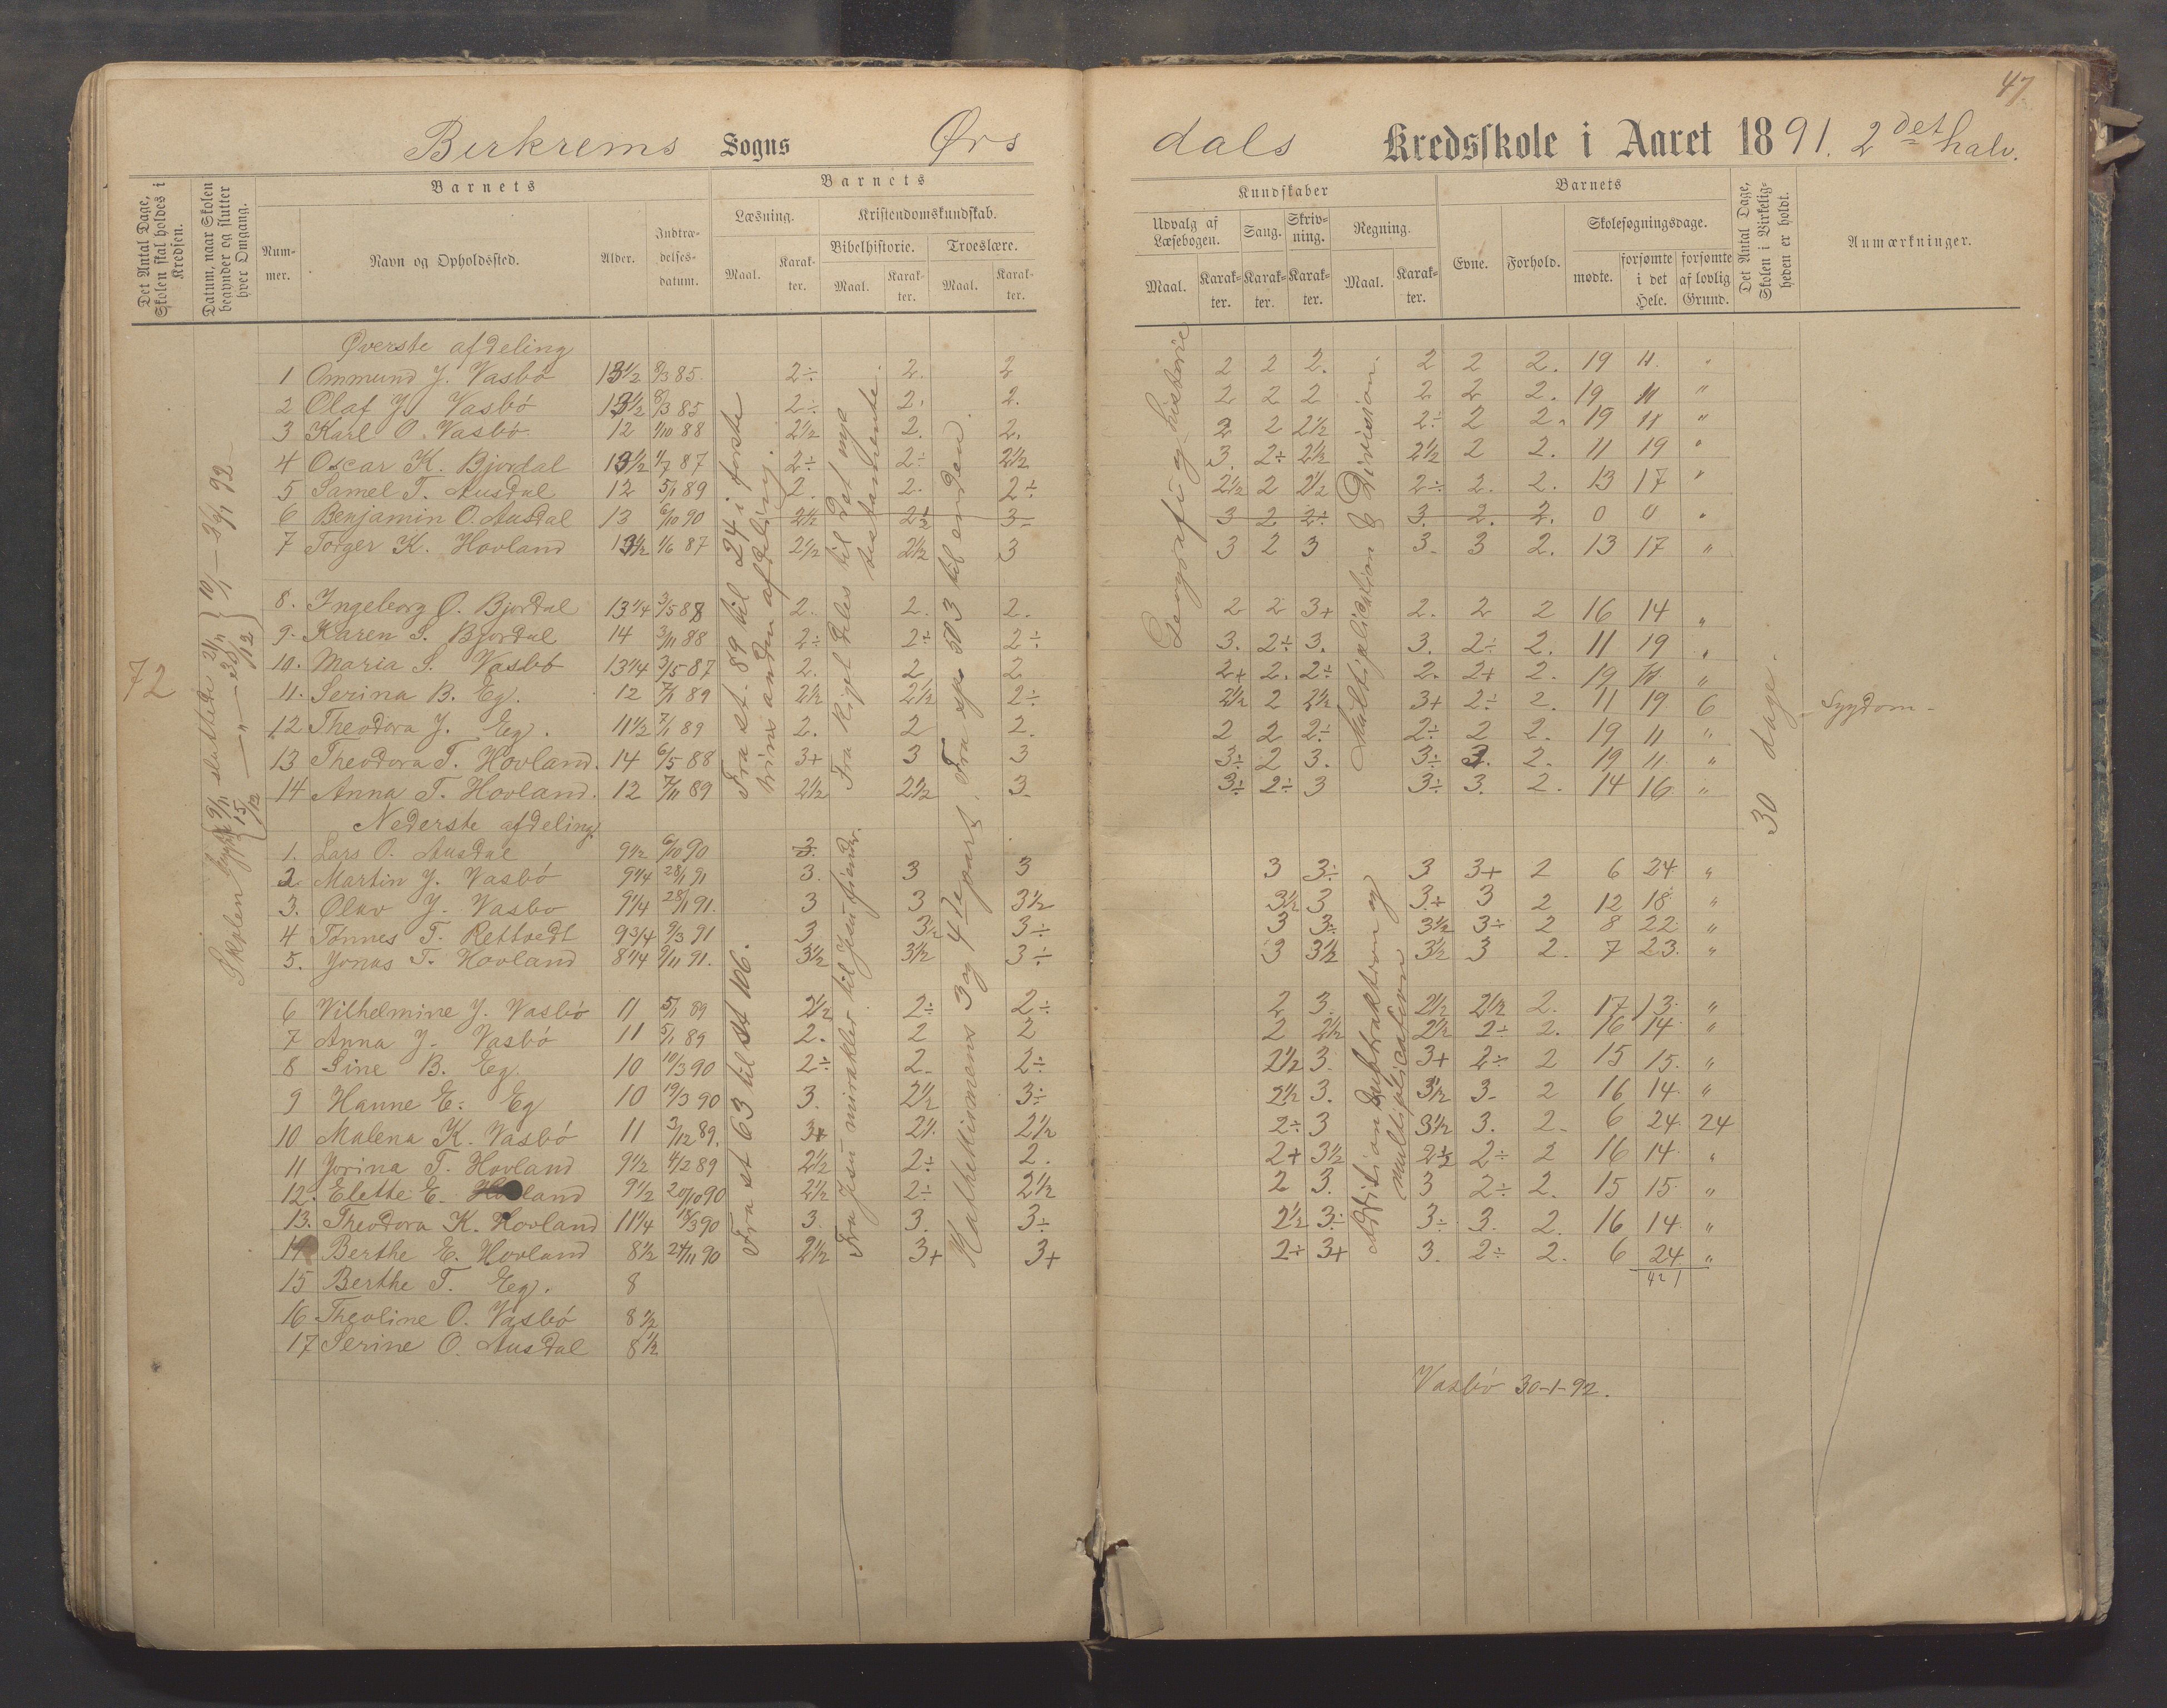 47
Birkrems Sogns Ørs dals Kredsskole i Aaret 1891. 2det halv.
Det Antal Dage, Skolen skal holdes i Kredsen.
Datum, naar Skolen begynder og slutter hver Omgang.
Barnets
Nummer.
Navn og Opholdssted.
Alder.
Indtrædelsesdatum.
Barnets
Læsning.
Maal.
Karakter.
Kristendomskundskab.
Bibelhistorie.
Maal.
Karakter.
Troeslære.
Maal.
Karakter.
Kundskaber
Udvalg af Læsebogen.
Maal.
Karakter.
Sang.
Karakter.
Skrivning.
Karakter.
Regning.
Maal.
Karakter.
Barnets
Evne.
Forhold.
Skolesøgningsdage.
mødte.
forsømte i det Hele.
forsømte af lovlig Grund.
Det Antal Dage, Skolen i Virkeligheden er holdt.
Anmærkninger.
72
Øverste afdeling
1 Ommund J. Vasbø 13 1/2 8/3 85. 2÷ 2. 2 2 2 2. 2 2 2. 19 11. "
2 Olaf J. Vasbø 13 1/2 8/3 85 2÷ 2. 2. 2 2 2 2 2 2. 19 11 "
3 Karl O. Vasbø 12 1/10 88 2 1/2 2. 2. 2 2 2 1/2 2÷ 2 2. 19 11 "
4 Oscar K. Bjordal 13 1/2 1/7 87 2÷ 2÷ 2 1/2 3. 2÷ 2 1/2 2 1/2 2 2. 11 19 "
5 Samel T. Ausdal 12 5/1 89 2. 2. 2÷ 2 1/2 2 2 1/2 2÷ 2. 2. 13 17 "
6 Benjamin O. Ausdal 13 6/10 90 2 1/2 2 1/2 3- 3 2 2÷ 3. 2. 2. 0 0 "
7 Torger K. Hovland 13 1/2 1/6 87 2 1/2 2 1/2 3 3 2 3 3. 3 2. 13 17 "
8. Ingeborg O. Bjordal 13 1/4 3/5 88 2. 2. 2. 2 2 3+ 2. 2 2 16 14 "
9. Karen S. Bjordal 14 3/11 88 2÷ 2÷ 2÷ 3. 2÷ 3. 3. 2÷ 2. 11 19 "
10. Maria S. Vasbø 13 1/4 3/5 87 2. 2 2 2+ 2. 2÷ 2. 2+ 2. 19 11. "
11. Serina B. Eg. 12 7/1 89 2 1/2 2 1/2 2÷ 2 1/2 2 2 1/2 3+ 2÷ 2. 11 19. 6 Sygdom-
12 Theodora J. Eg. 11 1/2 7/1 89 2. 2 2. 2 2 2÷ 2÷ 2 2. 19 11 "
13 Theodora T. Hovland. 14 6/5 88 3+ 3 3 3÷ 2 3. 3÷ 3. 2. 19 11. "
14 Anna T. Hovland. 12 7/11 89 2 1/2 2 1/2 3- 3÷ 2÷ 3 3÷ 3. 2. 14 16 "
Nederste afdeling
1. Lars O. Ausdal 9 1/2 6/10 90 3.
2. Martin J. Vasbø 9 1/4 28/1 91 3. 3 3 3 3÷ 3 3+ 2 6 24. "
3. Olav J. Vasbø 9 1/4 28/1 91. 3 3 3 1/2 3 1/2 3 3+ 3 2 12 18 "
4 Tønnes T. Rettvedt 9 3/4 9/3 91 3 3 1/2 3÷ 3 3÷ 3 1/2 3÷ 2 8 22 "
5. Jonas T. Hovland 8 1/4 9/11 91. 3 1/2 3 1/2 3÷ 3 3 1/2 3 1/2 3 2. 7 23. "
6 Vilhelmine J. Vasbø 11 5/1 89 2 1/2 2÷ 2÷ 2 3. 2 1/2 2 1/2 2. 17 13. "
7 Anna J. Vasbø 11 5/1 89 2. 2 2 2 2 1/2 2 1/2 2÷ 2. 16 14 "
8 Sine B. Eg. 10 10/3 90 2÷ 2- 2÷ 2 1/2 3. 3+ 2÷ 2 15 15. "
9 Hanne E. Eg 10 19/3 90 3. 2 1/2 3÷ 2 1/2 3. 3 1/2 3- 2 16 14. "
10 Malena K. Vasbø 11 3/12 89. 3+ 2 1/2 2 1/2 2÷ 3 3 1/2 3. 2- 6 24 24
11 Jorina T. Hovland 9 1/2 4/2 89 2 1/2 2÷ 2. 2+ 3 1/2 2 1/2 2÷ 2 16 14. "
12. Elette E. Hovland 9 1/2 20/10 90 2 1/2 2÷ 2 1/2 2 3. 3 2÷ 2. 15 15. "
13. Theodora K. Hovland 11 1/4 18/3 90 3. 3. 3÷ 2 1/2 3÷ 3÷ 3. 2. 16 14. "
14 Berthe E. Hovland 8 1/2 24/11 90 2 1/2 3+ 3+ 2÷ 3+ 3. 2÷ 2. 6 24. "
421
15 Berthe T. Eg. 8
16 Theoline O. Vasbø 8 1/2
17 Serine O. Ausdal 8 1/2
Fra st. 89 til 24 i første trins anden afdeling.
Fra Riget deles til det nye testamente.
Fra sp. 503 til enden.
Geografi og historie
Multiplication & Division.
Fra st 63 til st 106.
Fra Jesu mirakler til Jesu fiender.
Kathekismens 3 og 4de part.
Addition Subtraktion og multiplication
30 dage.
Vasbø 30-1-92.